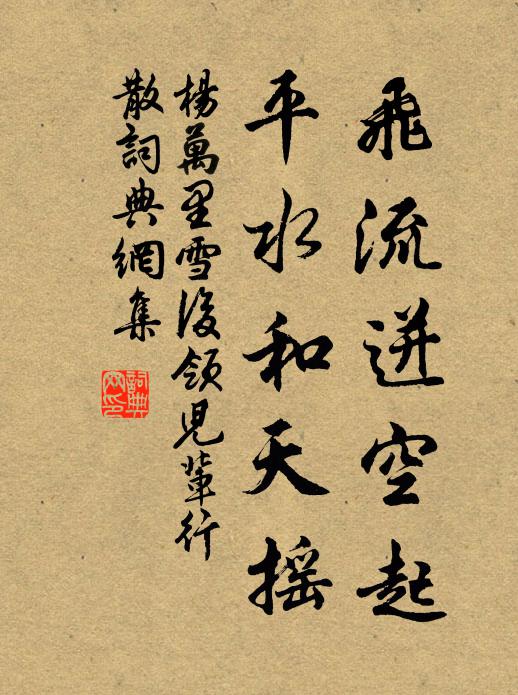 飛流迸空起
平水和天摇
楊萬里雪後領兒輩行
散詞典網集
詞典
网印